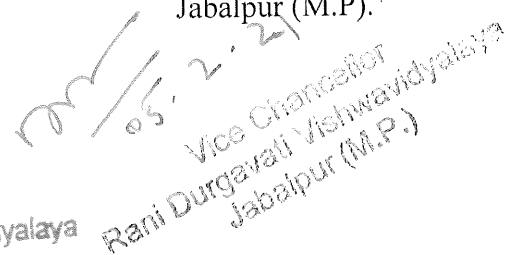 Jabalpur (M.P).
05.2.21
Vice Chancellor
Rani Durgavati Vishwavidyalaya
Jabalpur (M.P.)
yalaya